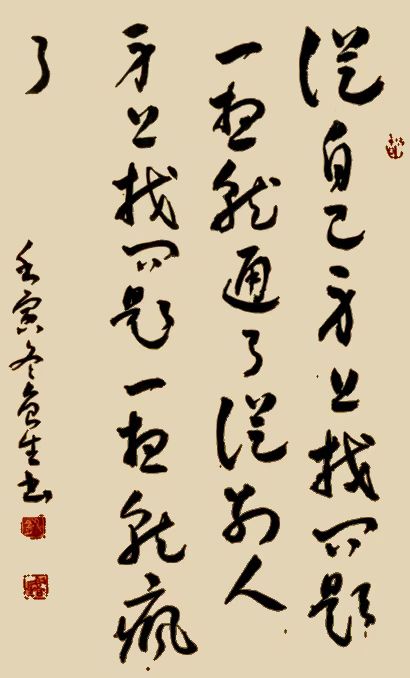 從自己身上找問題
一想就通了從別人
身上找問題一想就瘋
了
壬寅冬生書